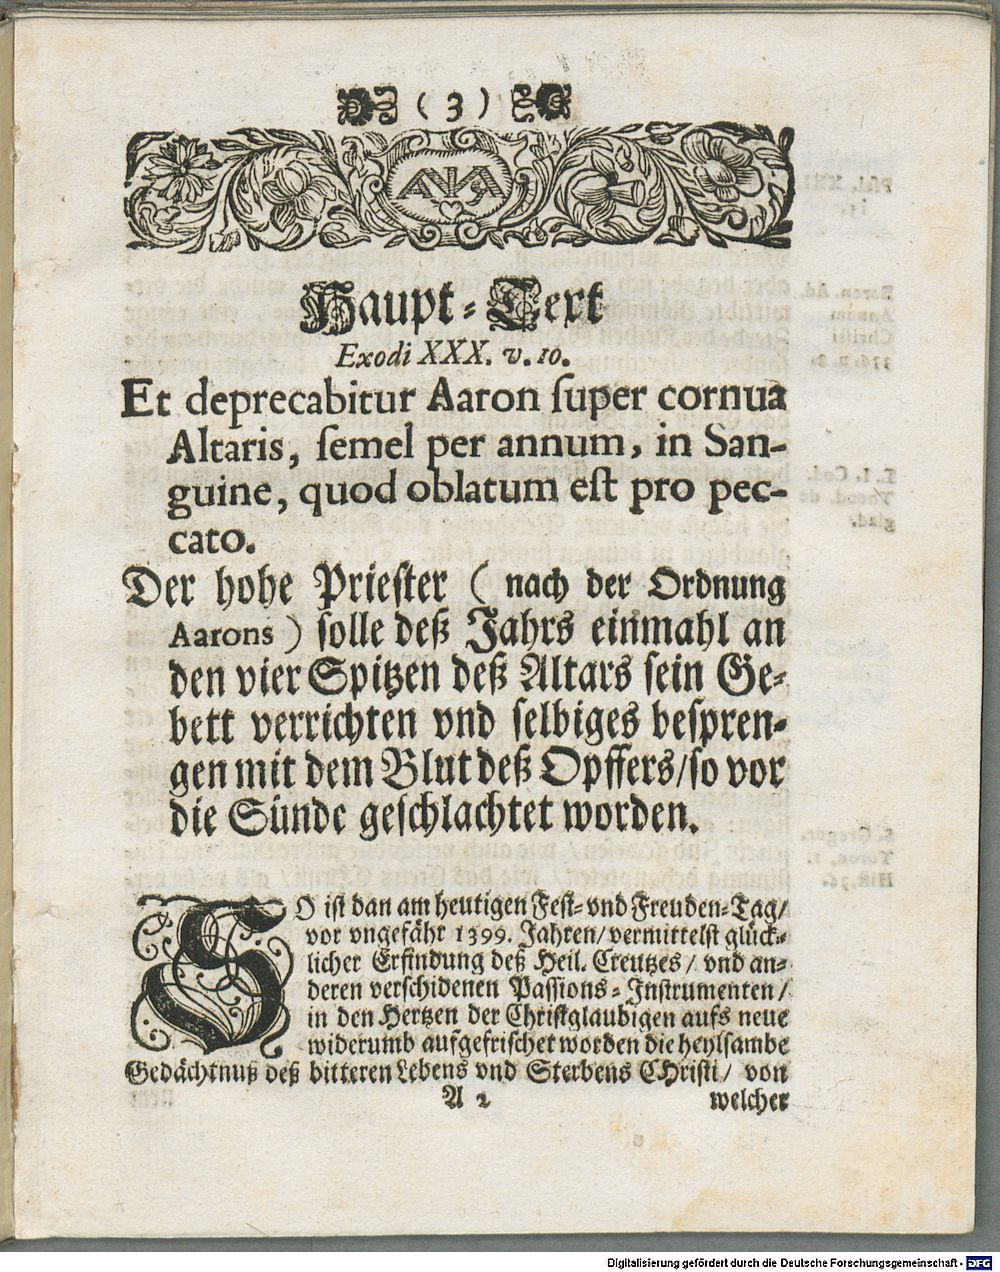 ( 3 )
Haupt-Text
Exodi XXX. v. 10.
Et deprecabitur Aaron ſuper cornua
Altaris, ſemel per annum, in San-
guine, quod oblatum eſt pro pec-
cato.
Der hohe Prieſter ( nach der Ordnung
Aarons ) ſolle deß Jahrs einmahl an
den vier Spitzen deß Altars ſein Ge-
bett verrichten vnd ſelbiges beſpren-
gen mit dem Blut deß Opffers/ſo vor
die Sünde geſchlachtet worden.
SO iſt dan am heutigen Feſt-vnd Freuden-Tag/
vor vngefähr 1399. Jahren/vermittelſt glück-
licher Erfindung deß Heil. Creutzes/ vnd an-
deren verſchidenen Paſſions-Inſtrumenten/
in den Hertzen der Chriſtglaubigen aufs neue
widerumb aufgefriſchet worden die heylſambe
Gedächtnuß deß bitteren Lebens vnd Sterbens CHriſti/ von
A 2 welcher
Digitalisierung gefördert durch die Deutsche Forschungsgemeinschaft - DFG